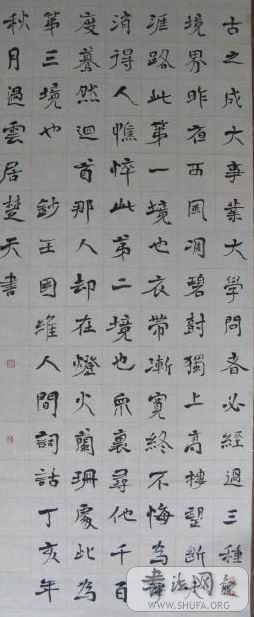 古之成大事業大學問者必經過三種
境界昨夜西風凋碧樹獨上高樓望斷天
涯路此第一境也衣帶漸寬終不悔為
消得人憔悴此第二境也眾裏尋他千百
度驀然迴首那人却在燈火闌珊處此為
第三境也 鈔王國維人間詞話丁亥年
秋月過雲居楚天書
書法網
WWW.SHUFA.ORG